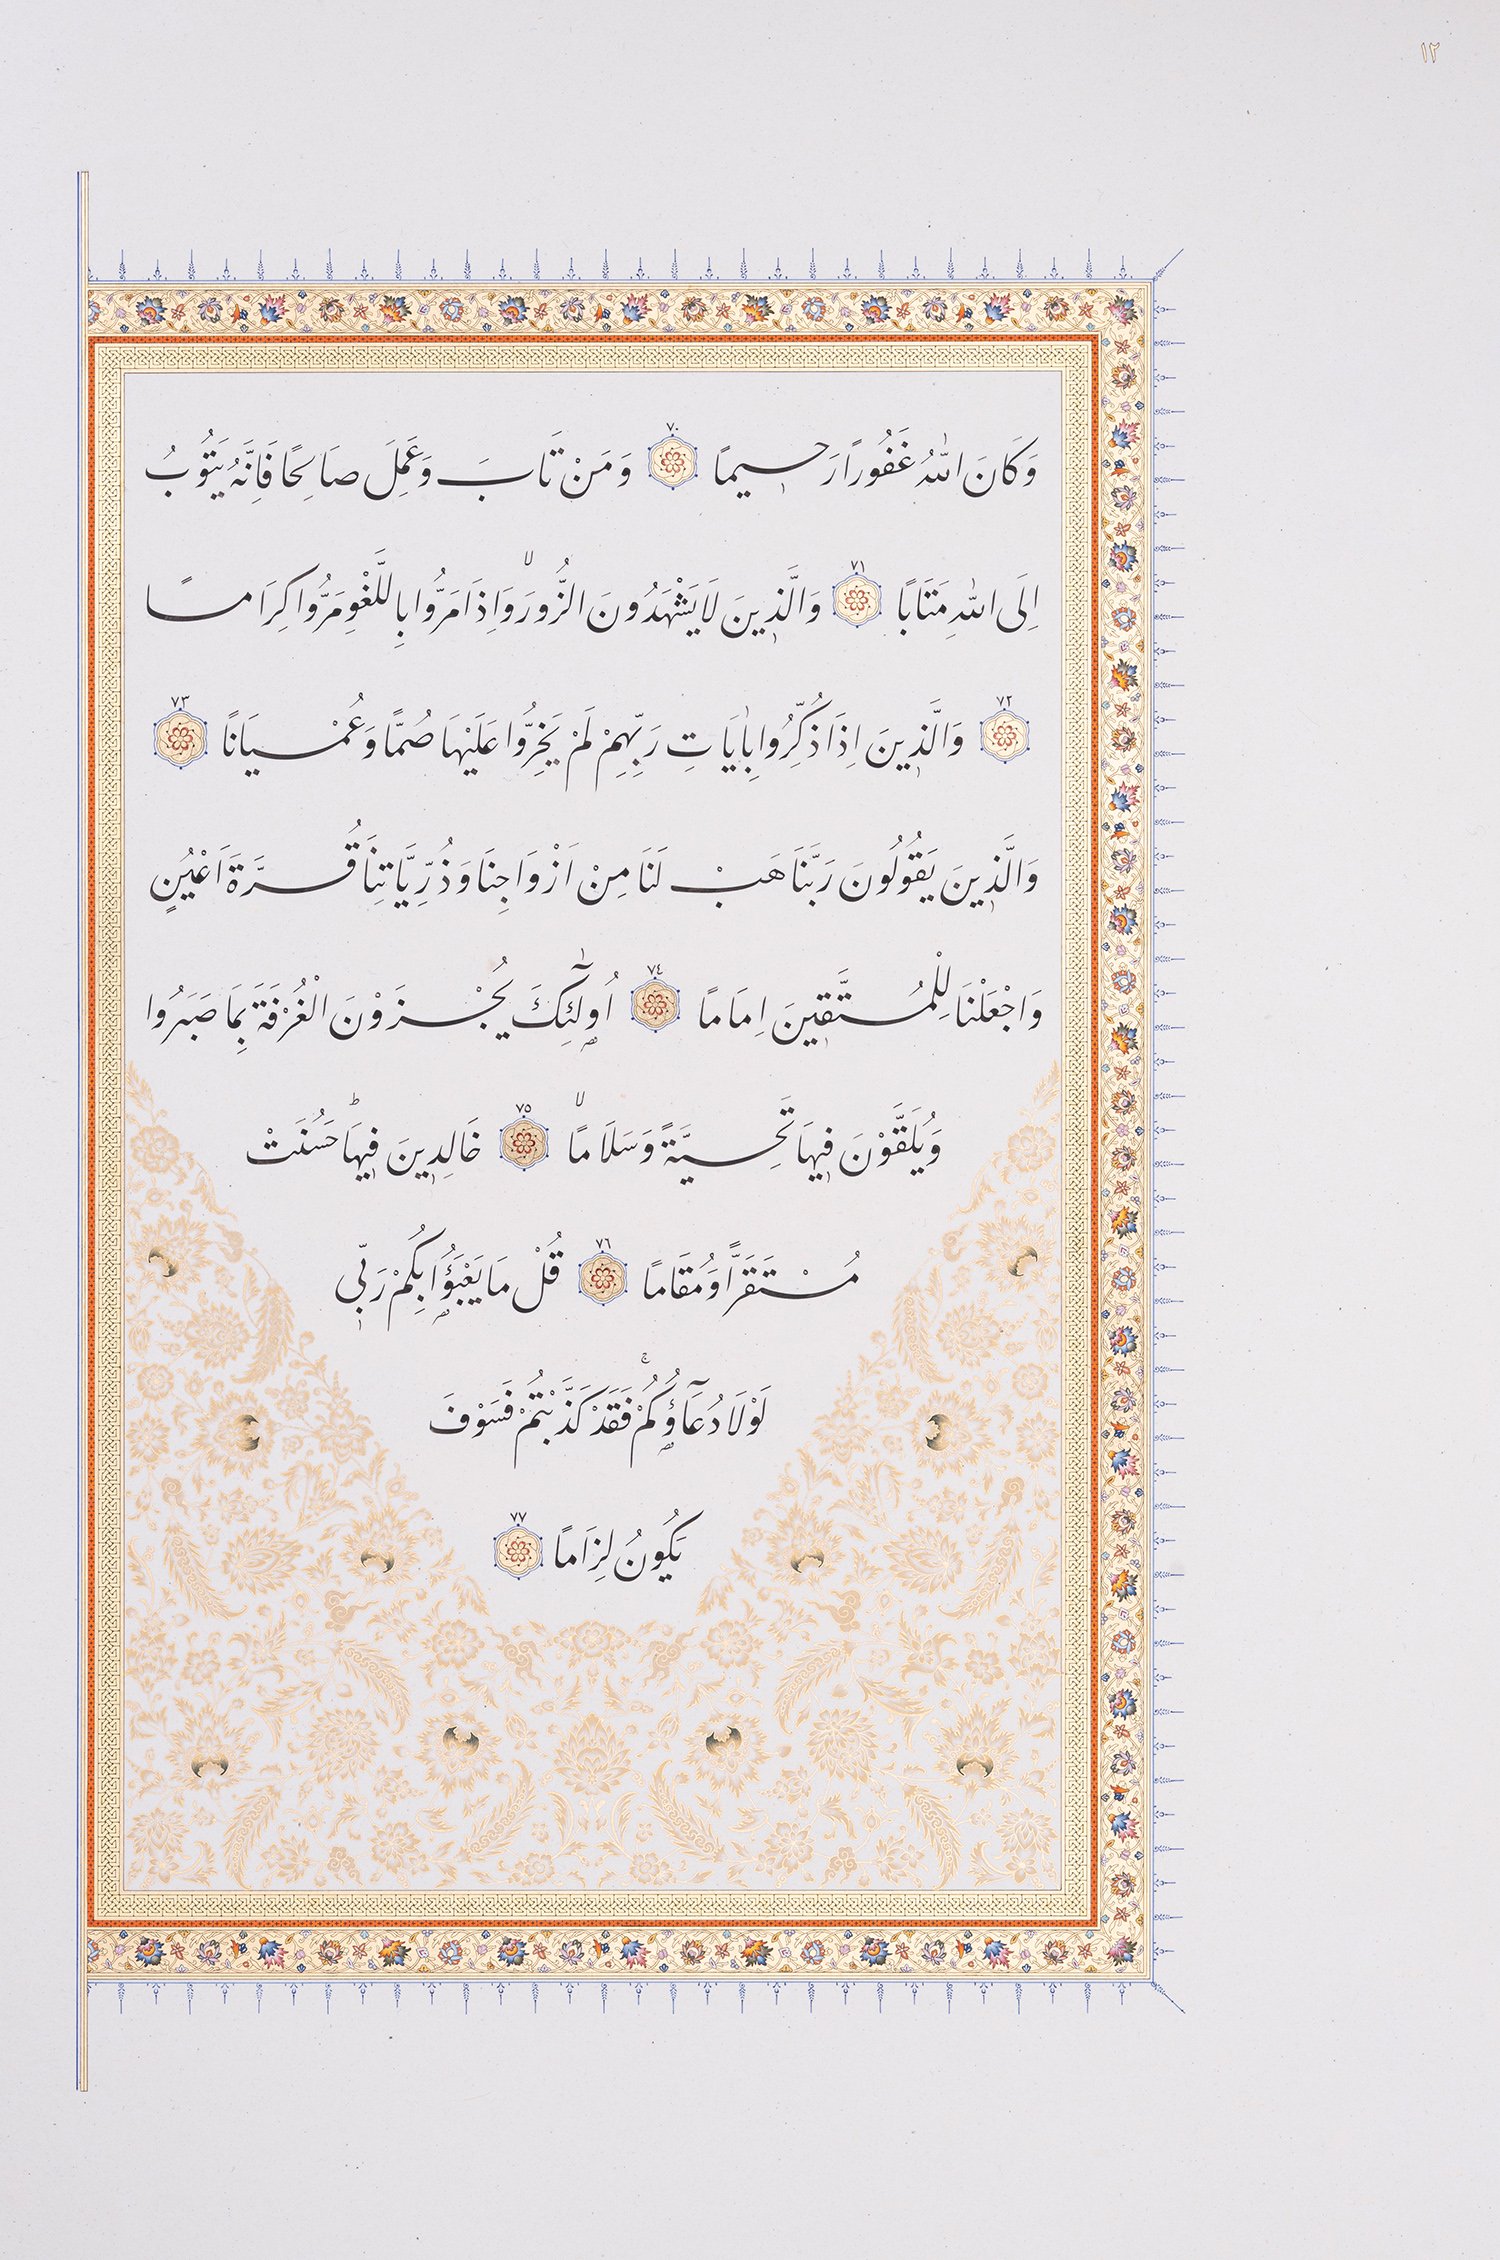 ١٢
وَكَانَ اللّٰهُ غَفُورًا رَحٖيمًا ٧٠ وَمَنْ تَابَ وَعَمِلَ صَالِحًا فَاِنَّهُ يَتُوبُ
اِلَى اللّٰهِ مَتَابًا ٧١ وَالَّذٖينَ لَا يَشْهَدُونَ الزُّورَۙ وَاِذَا مَرُّوا بِاللَّغْوِ مَرُّوا كِرَامًا
٧٢ وَالَّذٖينَ اِذَا ذُكِّرُوا بِاٰيَاتِ رَبِّهِمْ لَمْ يَخِرُّوا عَلَيْهَا صُمًّا وَعُمْيَانًا ٧٣
وَالَّذٖينَ يَقُولُونَ رَبَّنَا هَبْ لَنَا مِنْ اَزْوَاجِنَا وَذُرِّيَّاتِنَا قُرَّةَ اَعْيُنٍ
وَاجْعَلْنَا لِلْمُتَّقٖينَ اِمَامًا ٧٤ اُولٰٓئِكَ يُجْزَوْنَ الْغُرْفَةَ بِمَا صَبَرُوا
وَيُلَقَّوْنَ فٖيهَا تَحِيَّةً وَسَلَامًاۙ ٧٥ خَالِدٖينَ فٖيهَاۜ حَسُنَتْ
مُسْتَقَرًّا وَمُقَامًا ٧٦ قُلْ مَا يَعْبَؤُا بِكُمْ رَبّٖى
لَوْلَا دُعَٓاؤُكُمْۚ فَقَدْ كَذَّبْتُمْ فَسَوْفَ
يَكُونُ لِزَامًا ٧٧